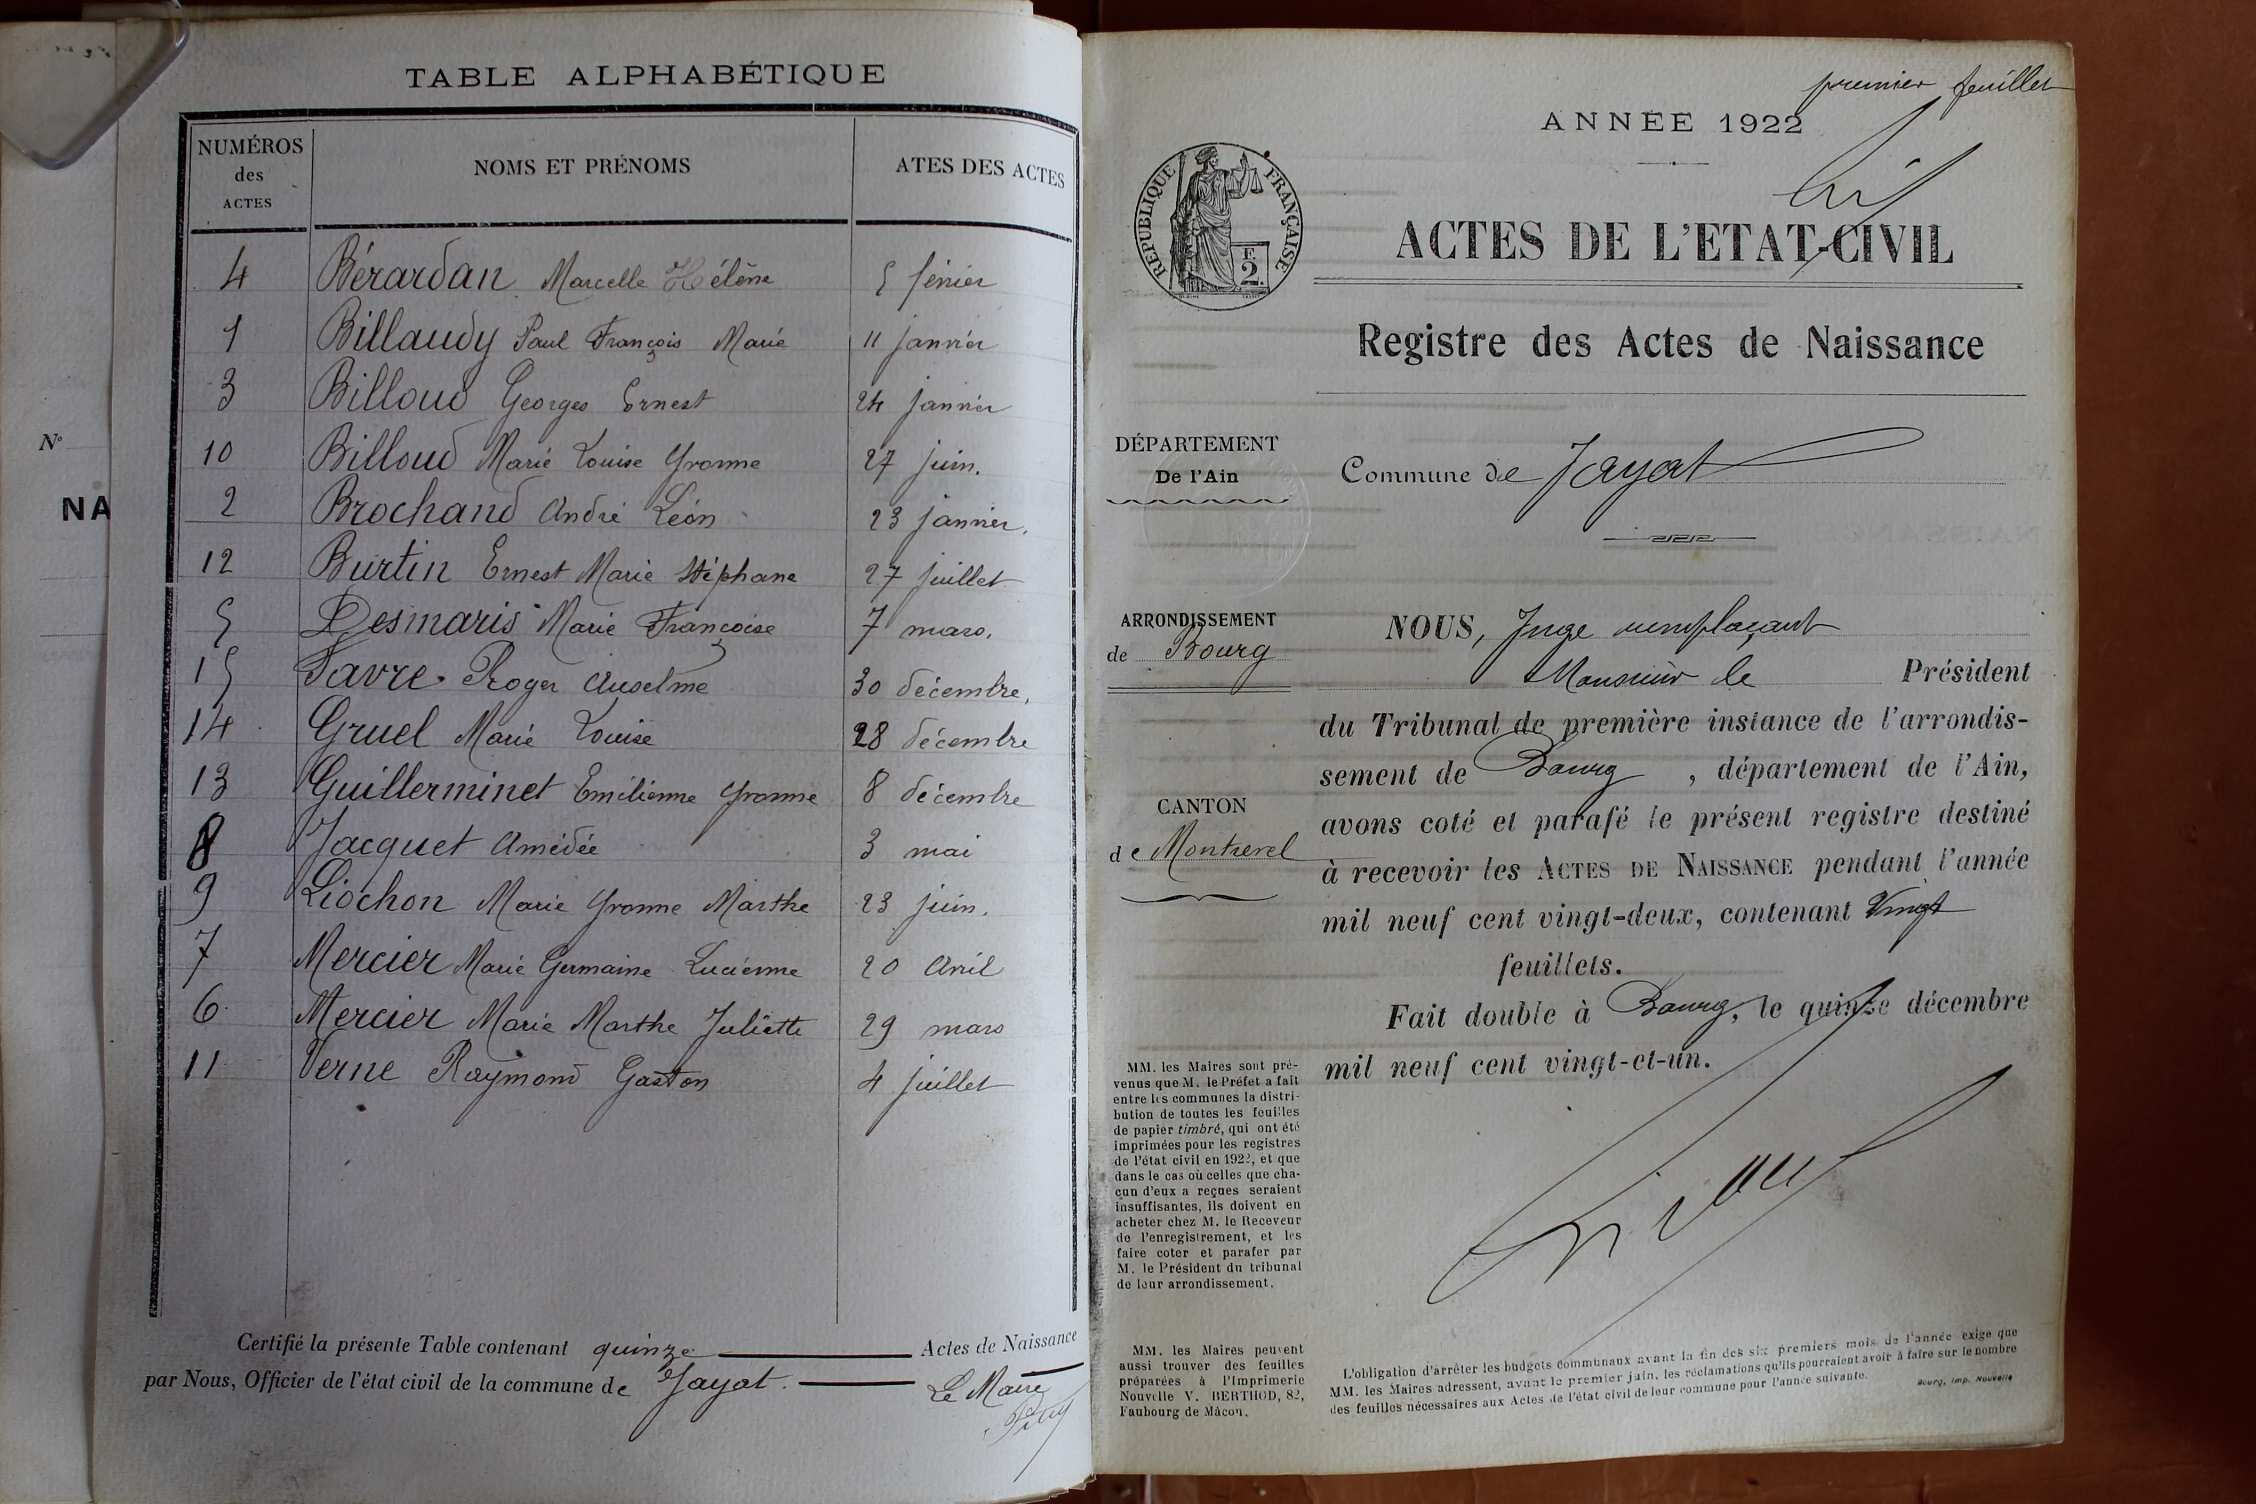 TABLE ALPHABÉTIQUE
NUMÉROS
des
ACTES
NOMS ET PRÉNOMS
ATES DES ACTES
4 Bérardan Marcelle Hélène 5 février
1 Billaudy Paul François Marie 11 janvier
3 Billoud Georges Ernest 24 janvier
10 Billoud Marie Louise Yvonne 27 juin.
2 Brochand André Léon 23 janvier.
12 Burtin Ernest Marie Stéphane 27 juillet
5 Desmaris Marie Françoise 7 mars.
15 Favre Roger Anselme 30 décembre.
14 Gruel Marie Louise 28 décembre
13 Guillerminet Emilienne Yvonne 8 décembre
8 Jacquet Amédée 3 mai
9 Liochon Marie Yvonne Marthe 23 juin.
7 Mercier Marie Germaine Lucienne 20 Avril
6 Mercier Marie Marthe Juliette 29 mars
11 Verne Raymond Gaston 4 juillet
Certifié la présente Table contenant quinze Actes de Naissance
par Nous, Officier de l'état civil de la commune de Jayat.
Le Maire
N°
NA
premier feuillet
ANNÉE 1922
RÉPUBLIQUE FRANÇAISE
F.
2.
ACTES DE L'ETAT-CIVIL
Registre des Actes de Naissance
DÉPARTEMENT
De l'Ain
Commune de Jayat
ARRONDISSEMENT
de Bourg
CANTON
de Montrevel
NOUS, Juge remplaçant
Monsieur le Président
du Tribunal de première instance de l'arrondis-
sement de Bourg, département de l'Ain,
avons coté et parafé le présent registre destiné
à recevoir les ACTES DE NAISSANCE pendant l'année
mil neuf cent vingt-deux, contenant Vingt
feuillets.
Fait double à Bourg, le quinze décembre
mil neuf cent vingt-et-un.
MM. les Maires sont pré-
venus que M. le Préfet a fait
entre les communes la distri-
bution de toutes les feuilles
de papier timbré, qui ont été
imprimées pour les registres
de l'état civil en 1922, et que
dans le cas où celles que cha-
cun d'eux a reçues seraient
insuffisantes, ils doivent en
acheter chez M. le Receveur
de l'enregistrement, et les
faire coter et parafer par
M. le Président du tribunal
de leur arrondissement.
MM. les Maires peuvent
aussi trouver des feuilles
préparées à l'Imprimerie
Nouvelle V. BERTHOD, 82,
Faubourg de Mâcon.
L'obligation d'arrêter les budgets communaux avant la fin des six premiers mois de l'année exige que
MM. les Maires adressent, avant le premier juin, les réclamations qu'ils pourraient avoir à faire sur le nombre
des feuilles nécessaires aux Actes de l'état civil de leur commune pour l'année suivante.
Bourg, Imp. Nouvelle